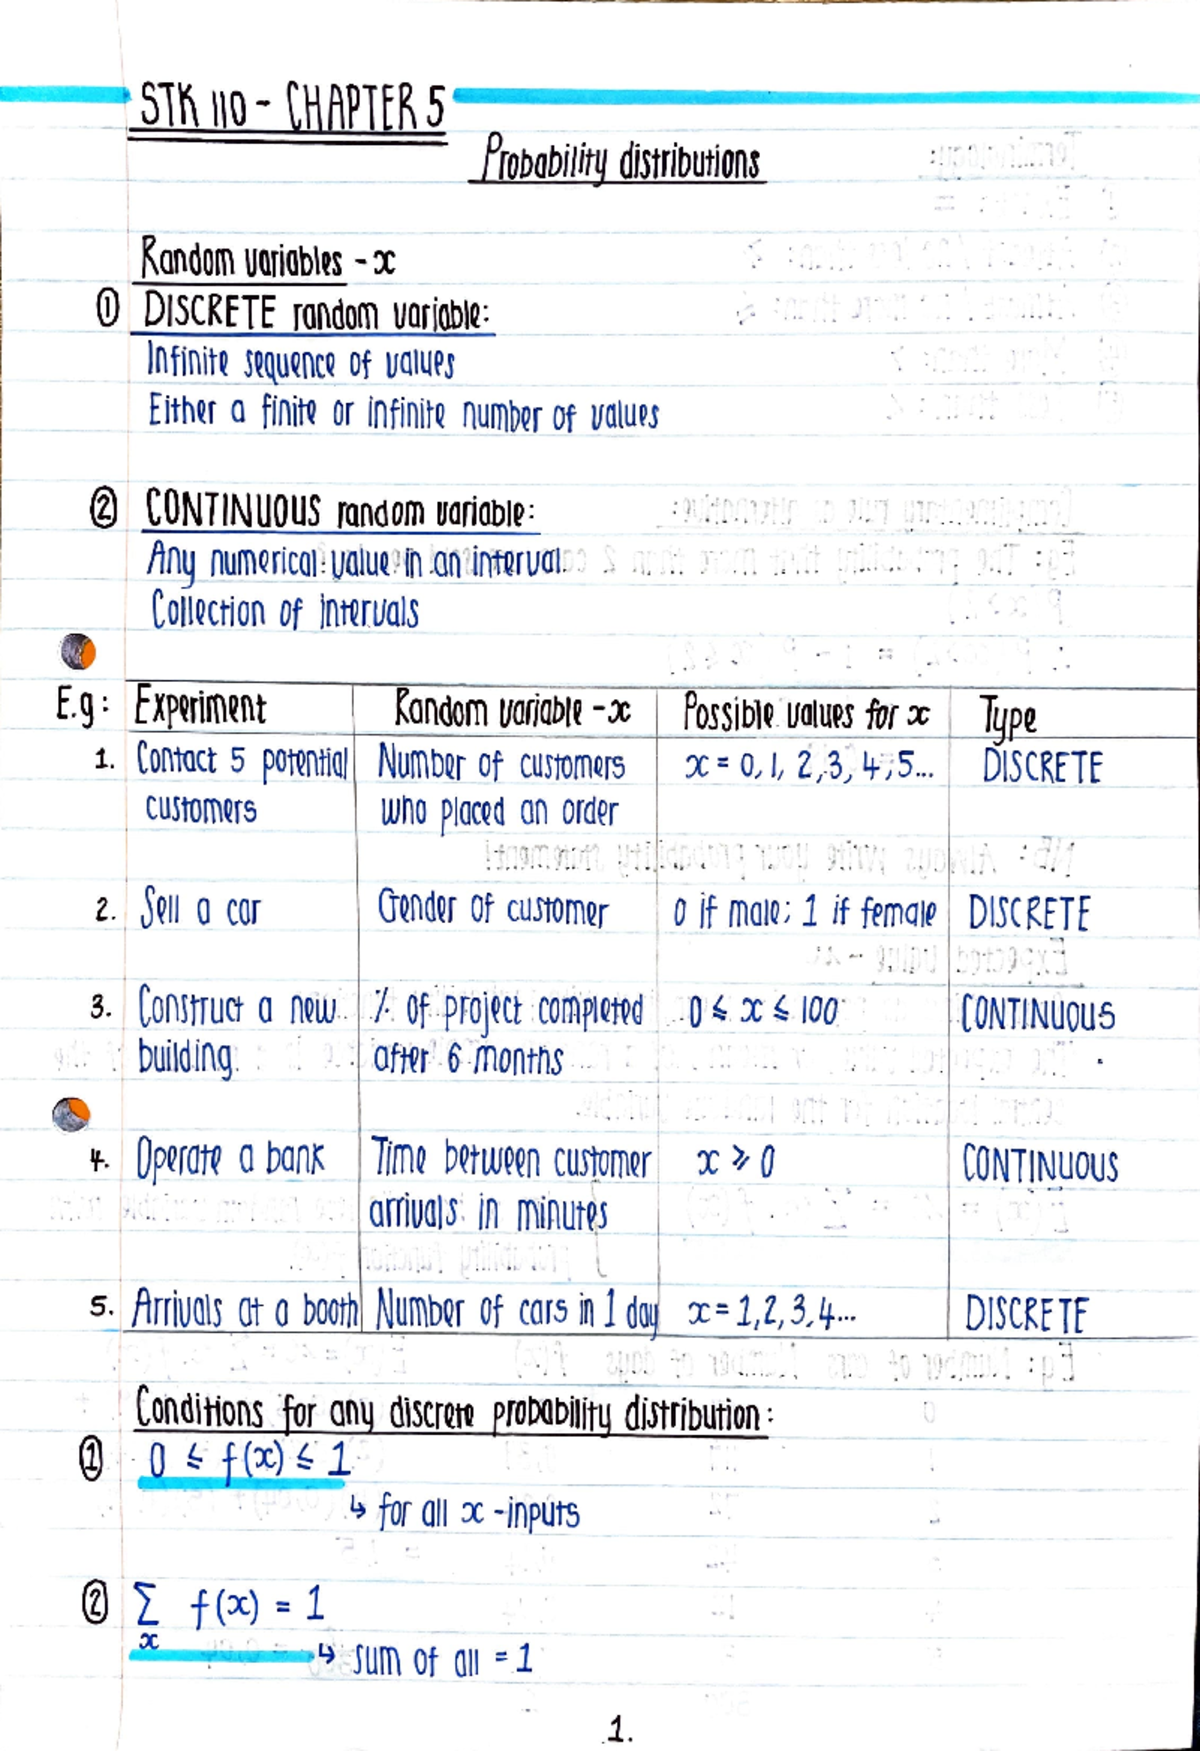 STK 110 - CHAPTER 5
Probability distributions
Random variables - x
① DISCRETE random variable:
Infinite sequence of values
Either a finite or infinite number of values
② CONTINUOUS random variable:
Any numerical value in an interval
Collection of intervals
E.g: Experiment Random variable - x Possible values for x Type
1. Contact 5 potential Number of customers x = 0, 1, 2, 3, 4, 5... DISCRETE
customers who placed an order
2. Sell a car Gender of customer 0 if male; 1 if female DISCRETE
3. Construct a new % of project completed 0 ≤ x ≤ 100 CONTINUOUS
building after 6 months
4. Operate a bank Time between customer x ≥ 0 CONTINUOUS
arrivals in minutes
5. Arrivals at a booth Number of cars in 1 day x = 1, 2, 3, 4... DISCRETE
Conditions for any discrete probability distribution:
① 0 ≤ f(x) ≤ 1
↳ for all x - inputs
② Σ f(x) = 1
x
↳ sum of all = 1
1.